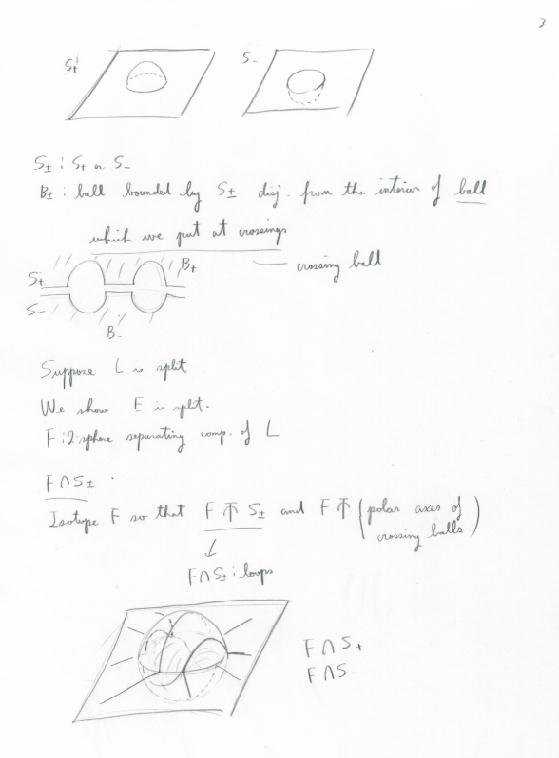 3
S+ S-
S± : S+ or S-
B± : ball bounded by S± disj. from the interior of ball
which we put at crossings
crossing ball
S+ B+
S-
B-
Suppose L is split
We show E is split.
F : 2-sphere separating comp. of L
F∩S±
Isotope F so that F ⋔ S± and F ⋔ (polar axes of
crossing balls)
↓
F∩S± : loops
F∩S+
F∩S-